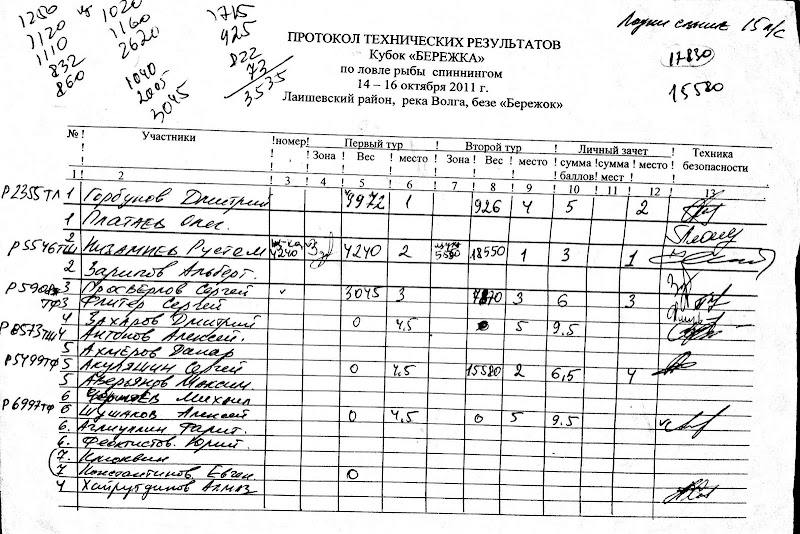 1250 1020 1715
1120 1160 925
1110 2620 822
832 1040 73
860 2005 3535
3045
15 л/с
17830
15580
ПРОТОКОЛ ТЕХНИЧЕСКИХ РЕЗУЛЬТАТОВ
Кубок «БЕРЕЖКА»
по ловле рыбы спиннингом
14 – 16 октября 2011 г.
Лаишевский район, река Волга, безе «Бережок»
№ ! Участники !номер! Первый тур ! Второй тур ! Личный зачет ! Техника
! Зона ! Вес ! место ! Зона ! Вес ! место ! сумма !сумма ! место ! безопасности
!баллов! мест !
1 ! 2 3 4 5 6 7 8 9 10 11 12 13
Р2355ТЛ 1 Горбунов Дмитрий 9972 1 926 4 5 2
1 Платаев Олег.
Р5546ТШ 2 Низамиев Рустем 4240 4240 2 18550 1 3 1
2 Зарипов Альберт.
3 Просвернов Сергей 3045 3 7870 3 6 3
3 Флитер Сергей
4 Захаров Дмитрий 0 4,5 0 5 9.5
Р8573ТШ 4 Антонов Алексей.
5 Ахмеров Данар
Р5499ТФ 5 Акуляшин Сергей 0 4,5 15580 2 6,5 4
5 Аверьянов Максим.
6 Михаил
Р6997ТФ 6 Шушаков Алексей 0 4,5 0 5 9.5
6. Аглиуллин Фарит.
6. Феоктистов Юрий.
7.
7 Константинов Евген 0
4 Хайрутдинов Алмаз